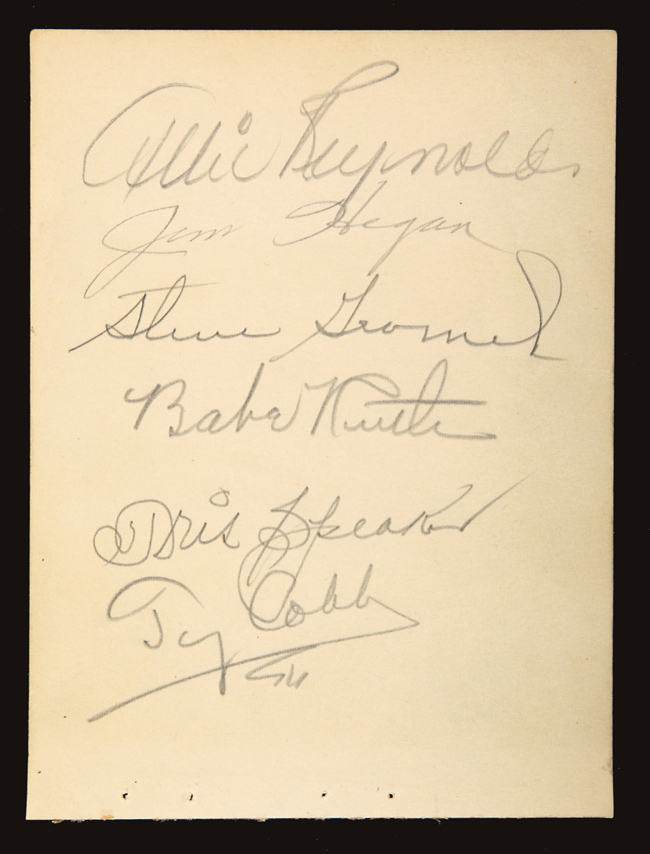 Allie Reynolds
Jim Hegan
Steve Gromek
Babe Ruth
Tris Speaker
Ty Cobb